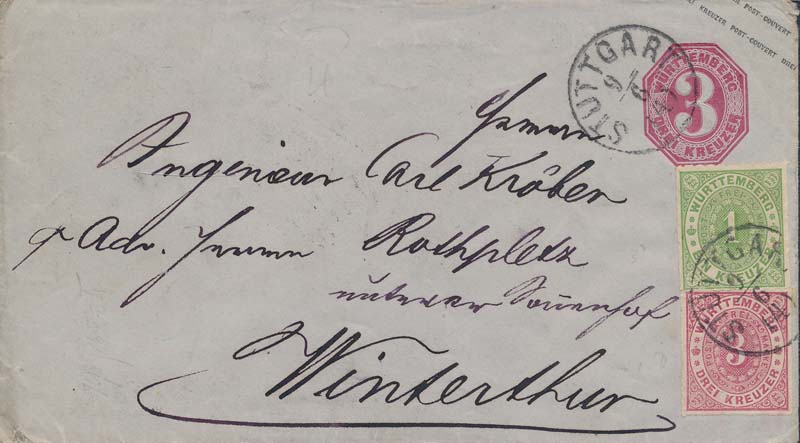 KREUZER POST-COUVERT DREI
KREUZER POST-COUVERT DREI
STUTTGART
WÜRTTEMBERG
3
DREI KREUZER
Herrn
Ingenieur Carl Kröber
Adr. Herren Rothpletz
unterer Sonnenhof
Winterthur
WÜRTTEMBERG
1
EIN KREUZER
STUTTGART
WÜRTTEMBERG
3
DREI KREUZER